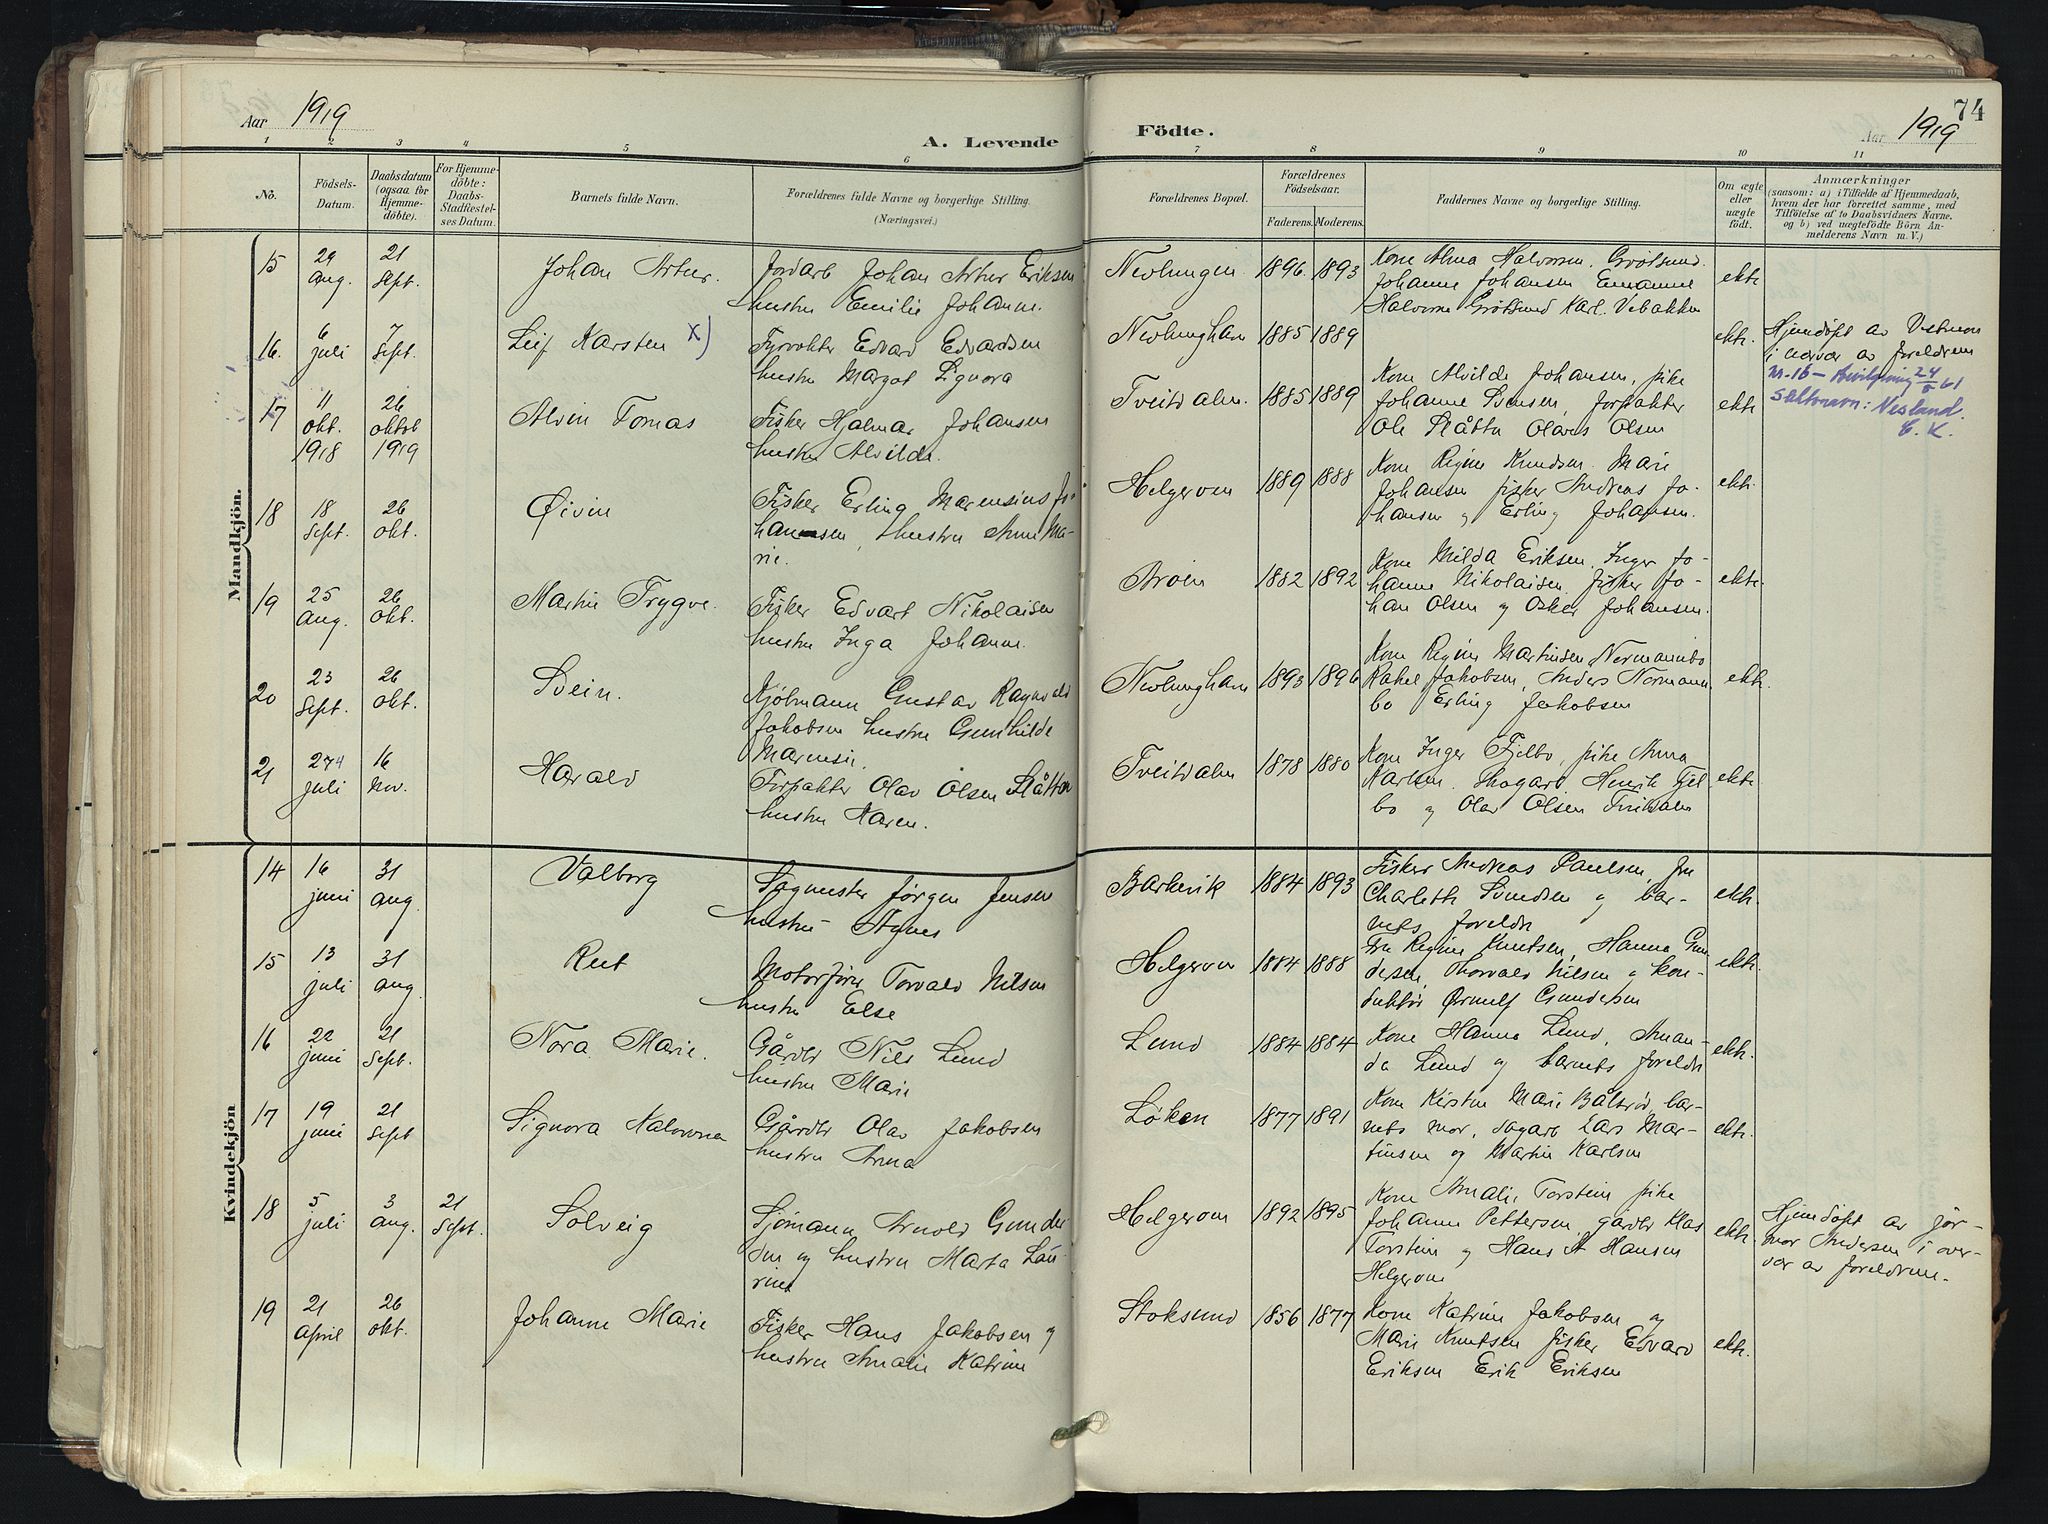 Aar 1919
A. Levende Födte.
Aar 1919
74
1 2 3 4 5 6 7 8 9 10 11
No.
Födsels-
Datum.
Daabsdatum
(ogsaa for
Hjemme-
döbte).
For Hjemme-
döbte:
Daabs-
Stadfestel-
ses Datum.
Barnets fulde Navn.
Forældrenes fulde Navne og borgerlige Stilling.
(Næringsvei.)
Forældrenes Bopæl.
Forældrenes
Födselsaar.
Faderens. Moderens.
Faddernes Navne og borgerlige Stilling.
Om ægte
eller
uægte
födt.
Anmærkninger
(saasom: a) i Tilfælde af Hjemmedaab,
hvem der har forrettet samme, med
Tilföielse af to Daabsvidners Navne.
og b) ved uægtefödte Börn An-
melderens Navn m. V.)
Mandkjön.
15
29
aug.
21
sept.
Johan Artur.
Jordarb Johan Artur Eriksen
hustru Emilie Johanne.
Nevlungen
1896. 1893
Kone Alma Halvorsen. Grøtsund.
Johanne Johansen Emanuel
Halvorsen Grøtsund Karl. Vebakken
ekte
16.
6
juli
7
sept.
Leif Karsten x)
Fyrvokter Edvard Edvardsen
hustru Margot Signora
Nevlunghavn
1885 1889
ekte.
Hjemdøpt av
i nærvær av foreldrene
nr. 16 – Bevilgning 24/5 61
Slektsnavn: Nesland.
E. K.
17
11
okt.
1918
26
oktob
1919
Alvin Tomas
Fisker Hjalmar Johansen
hustru Alvilde.
Tveitdalen.
1885 1889
Kone Alvilde Johansen, pike
Johanne Svensen, forpakter
Ole Slåtta Olaves Olsen
ekte
18
18
sept.
26
okt.
Øivin
Fisker Erling Marensius Jo-
hannsen, hustru Anne Ma-
rie.
Helgeroen
1889 1888
Kone Regine Knudsen. Marie
Johansen fisker Andreas Jo-
hansen og Erling Johansen.
ekte.
19
25
aug.
26
okt.
Martin Trygve.
Fisker Edvart Nikolaisen
hustru Inga Johanne.
Arøen
1882 1892
Kone Milda Eriksen. Inger Jo-
hanne Nikolaisen. fisker Jo-
han Olsen og Oskar Johansen.
ekte.
20
23
sept.
26
okt.
Svein.
Sjømann Gustav Ragnvald
Jakobsen hustru Gunhilde
Marensie.
Nevlunghavn
1893 1896
Kone Regine Martinsen Normannbo
Rakel Jakobsen, Anders Normann-
bo Erling Jakobsen
ekte.
21
274
juli
16
nov.
Harald
Forpakter Olav Olsen Slåtten
hustru Karen.
Tveitdalen
1878 1880
Kone Inger Fjelbo, pike Anna
Karlsen. Skogarb. Henrik Fjel-
bo og Olav Olsen Tveitdalen
ekte
Kvindekjön
14
16
juni
31
aug.
Valborg
Sagmester Jørgen Jensen
hustru Agnes
Barkevik
1884 1893
Fisker Andreas Paulsen, fru
Charlotte Svendsen og bar-
nets foreldre
ekte.
15
13
juli
31
aug.
Rut
Motorfører Torvald Nilsen
hustru Else
Helgeroen
1884 1888
Fru Regine Knutsen, Hanna Gun-
dersen, Thorvald Nilsen og kon-
duktør Ørnulf Gundersen
ekte.
16
22
juni
21
sept.
Nora Marie.
Gårdbr Nils Lund
hustru Marie
Lund
1884 1884
Kone Hanna Lund, Aman-
da Lund og barnets foreldre
ekte.
17
19
juni
21
sept
Signora Kalovna
Gårdbr Olav Jakobsen
hustru Anna
Løken
1877 1891
Kone Kirsten Marie Bålsrød, bar-
nets mor, dagarb Lars Mar-
tinsen og Martin Karlsen
ekte.
18
5
juli
3
aug.
21
sept.
Solveig
Sjømann Arnold Gunder-
sen og hustru Marta Lau-
rine
Helgeroen
1892 1895
Kone Amalie Torstein pike
Johanne Pettersen, gårdbr Klas
Torstein og Hans A Hansen
Helgeroen
ekte.
Hjemdøpt av jor-
mor Andersen i over-
vær av foreldrene.
19
21
april
26
okt.
Johanne Marie
Fisker Hans Jakobsen og
hustru Amalie Katrine
Stoksund
1856 1877
Kone Katrine Jakobsen og
Marie Knutsen fisker Edvard
Eriksen Erik Eriksen
ekte.